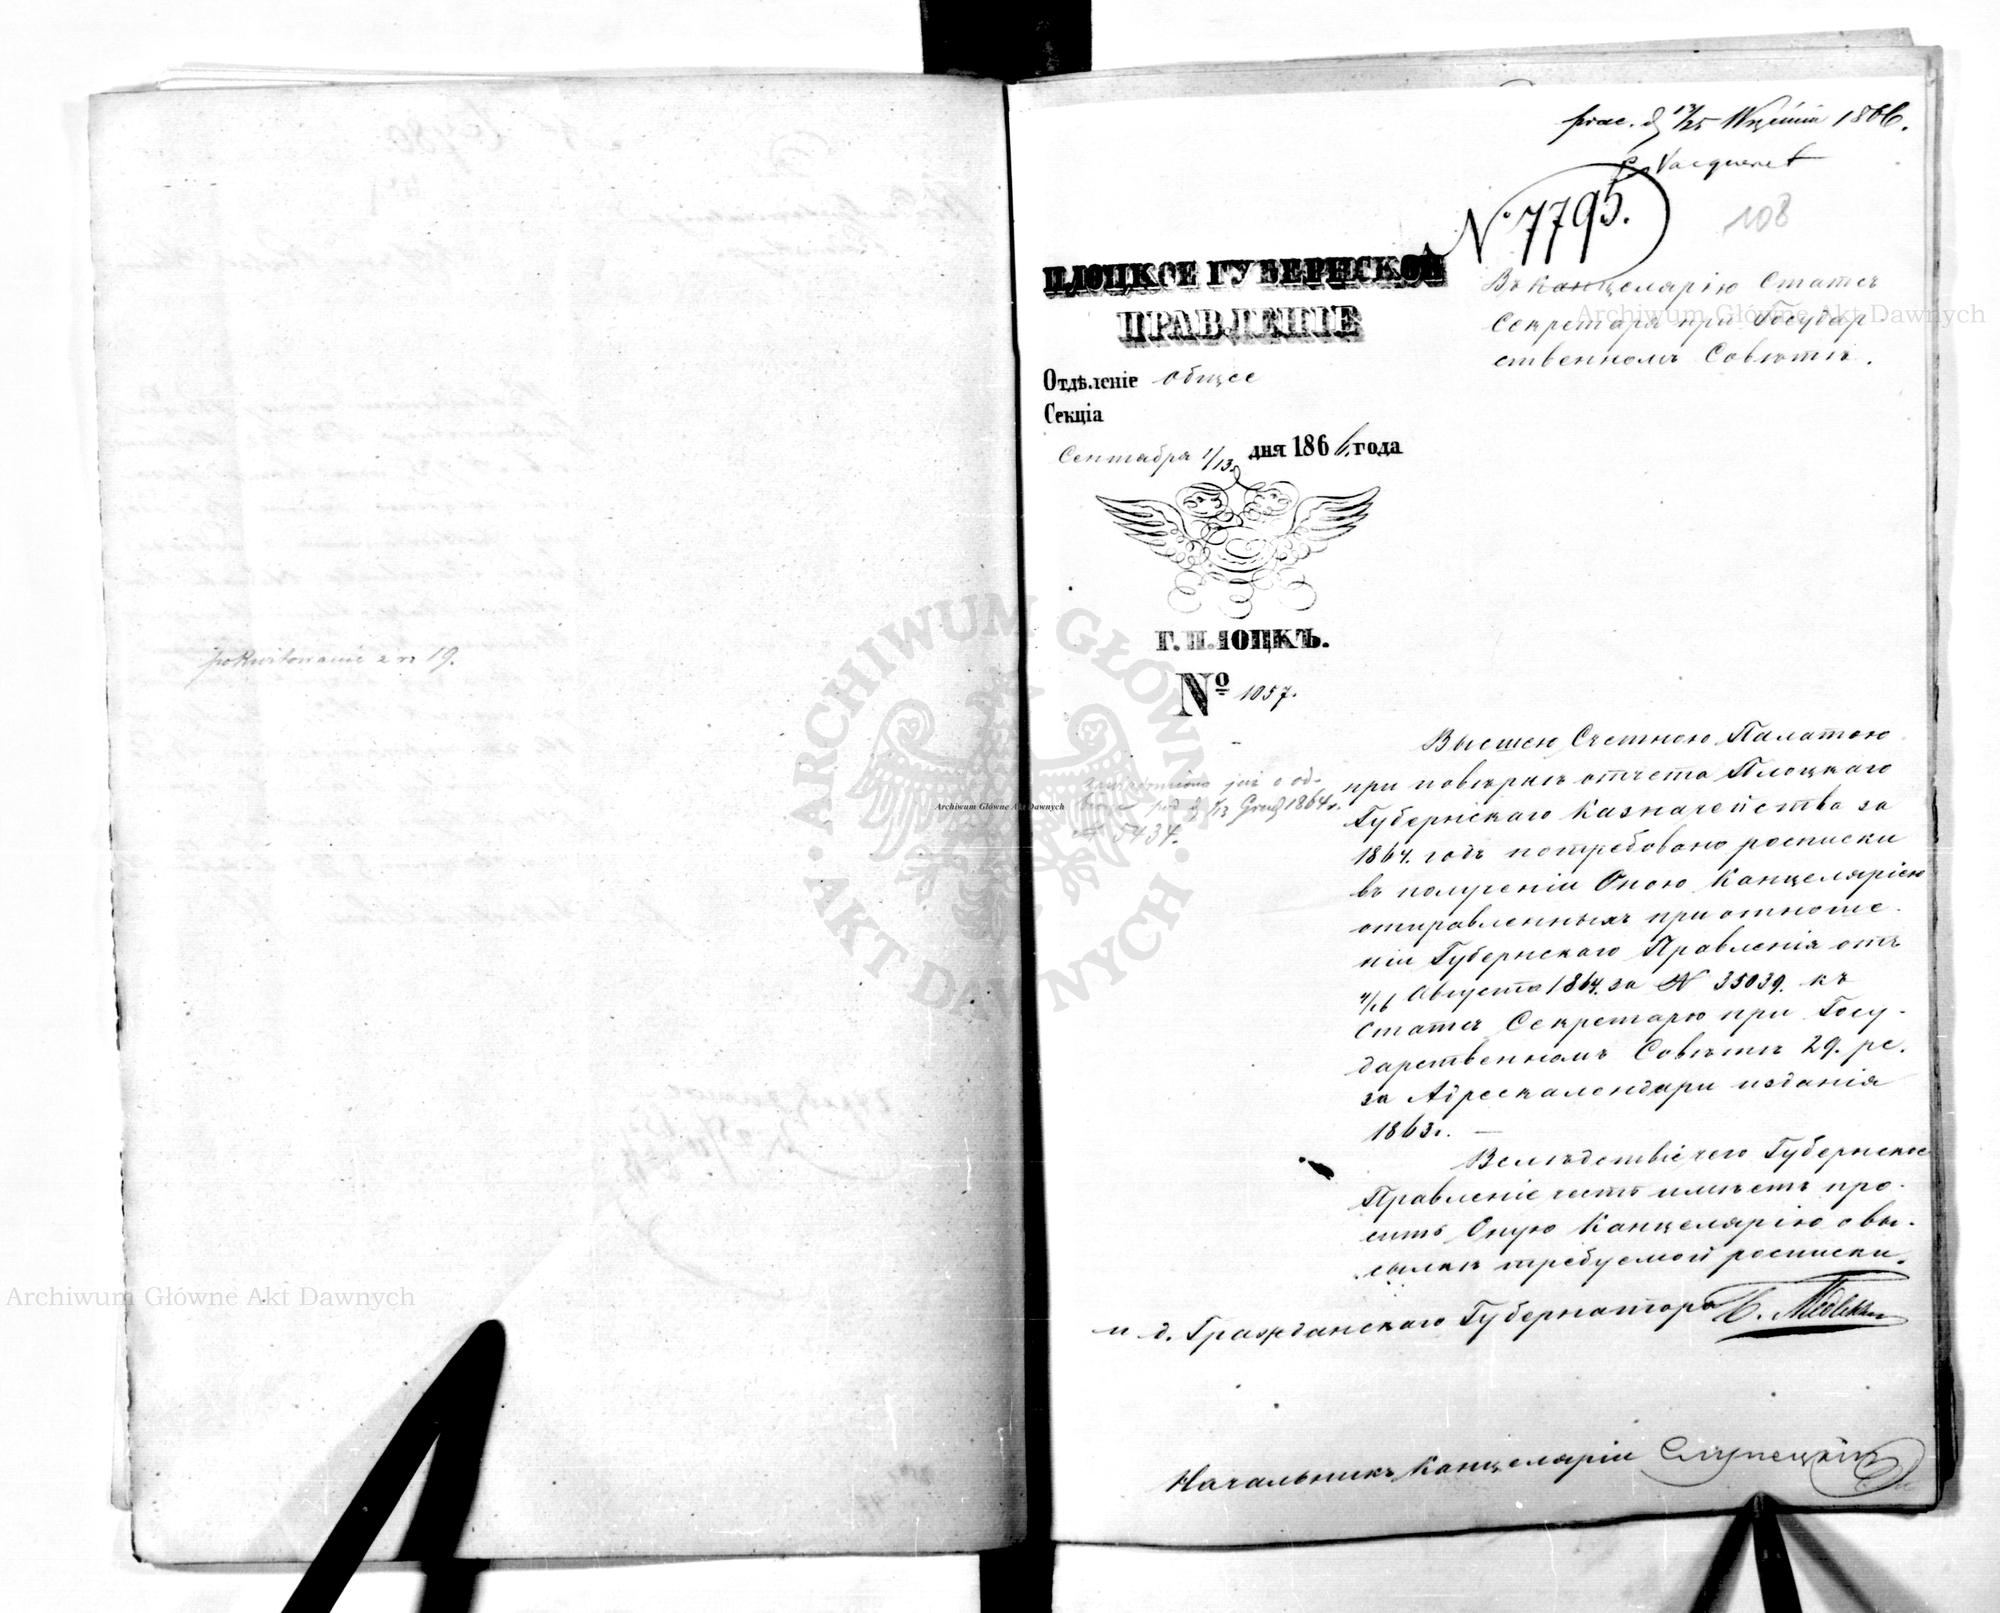 pokwitowanie z n 19.
prac. d. 13/25 Września 1866.
Vacqueret
№ 7795.
108
ПЛОЦКОЕ ГУБЕРНСКОЕ
ПРАВЛЕНІЕ
Въ Канцелярію Статсъ
Секретаря при Государ-
ственномъ Совѣтѣ.
Отдѣленіе общее
Секція
Сентября 1/13 дня 1866 года
Г. ПЛОЦКЪ.
№ 1057.
już o od-
pod d 1/13 Grud 1864 r.
№ 5434.
Высшею Счетною Палатою
при повѣркѣ отчета Плоцкаго
Губернскаго Казначейства за
1864. годъ потребовано росписки
въ полученіи Оною Канцеляріею
отправленныхъ при отноше-
ніи Губернскаго Правленія отъ
4/16 Августа 1864. за № 35039. къ
Статсъ Секретарю при Госу-
дарственномъ Совѣтѣ 29. рс.
за Адрескалендари изданія
1863 г. —
Вслѣдствіе чего Губернское
Правленіе честь имѣетъ про-
сить Оную Канцелярію о вы-
сылкѣ требуемой росписки.
и д. Гражданскаго Губернатора
Начальникъ Канцеляріи Слупецкій
Archiwum Główne Akt Dawnych
Archiwum Główne Akt Dawnych
Archiwum Główne Akt Dawnych
ARCHIWUM GŁÓWNE · AKT DAWNYCH ·